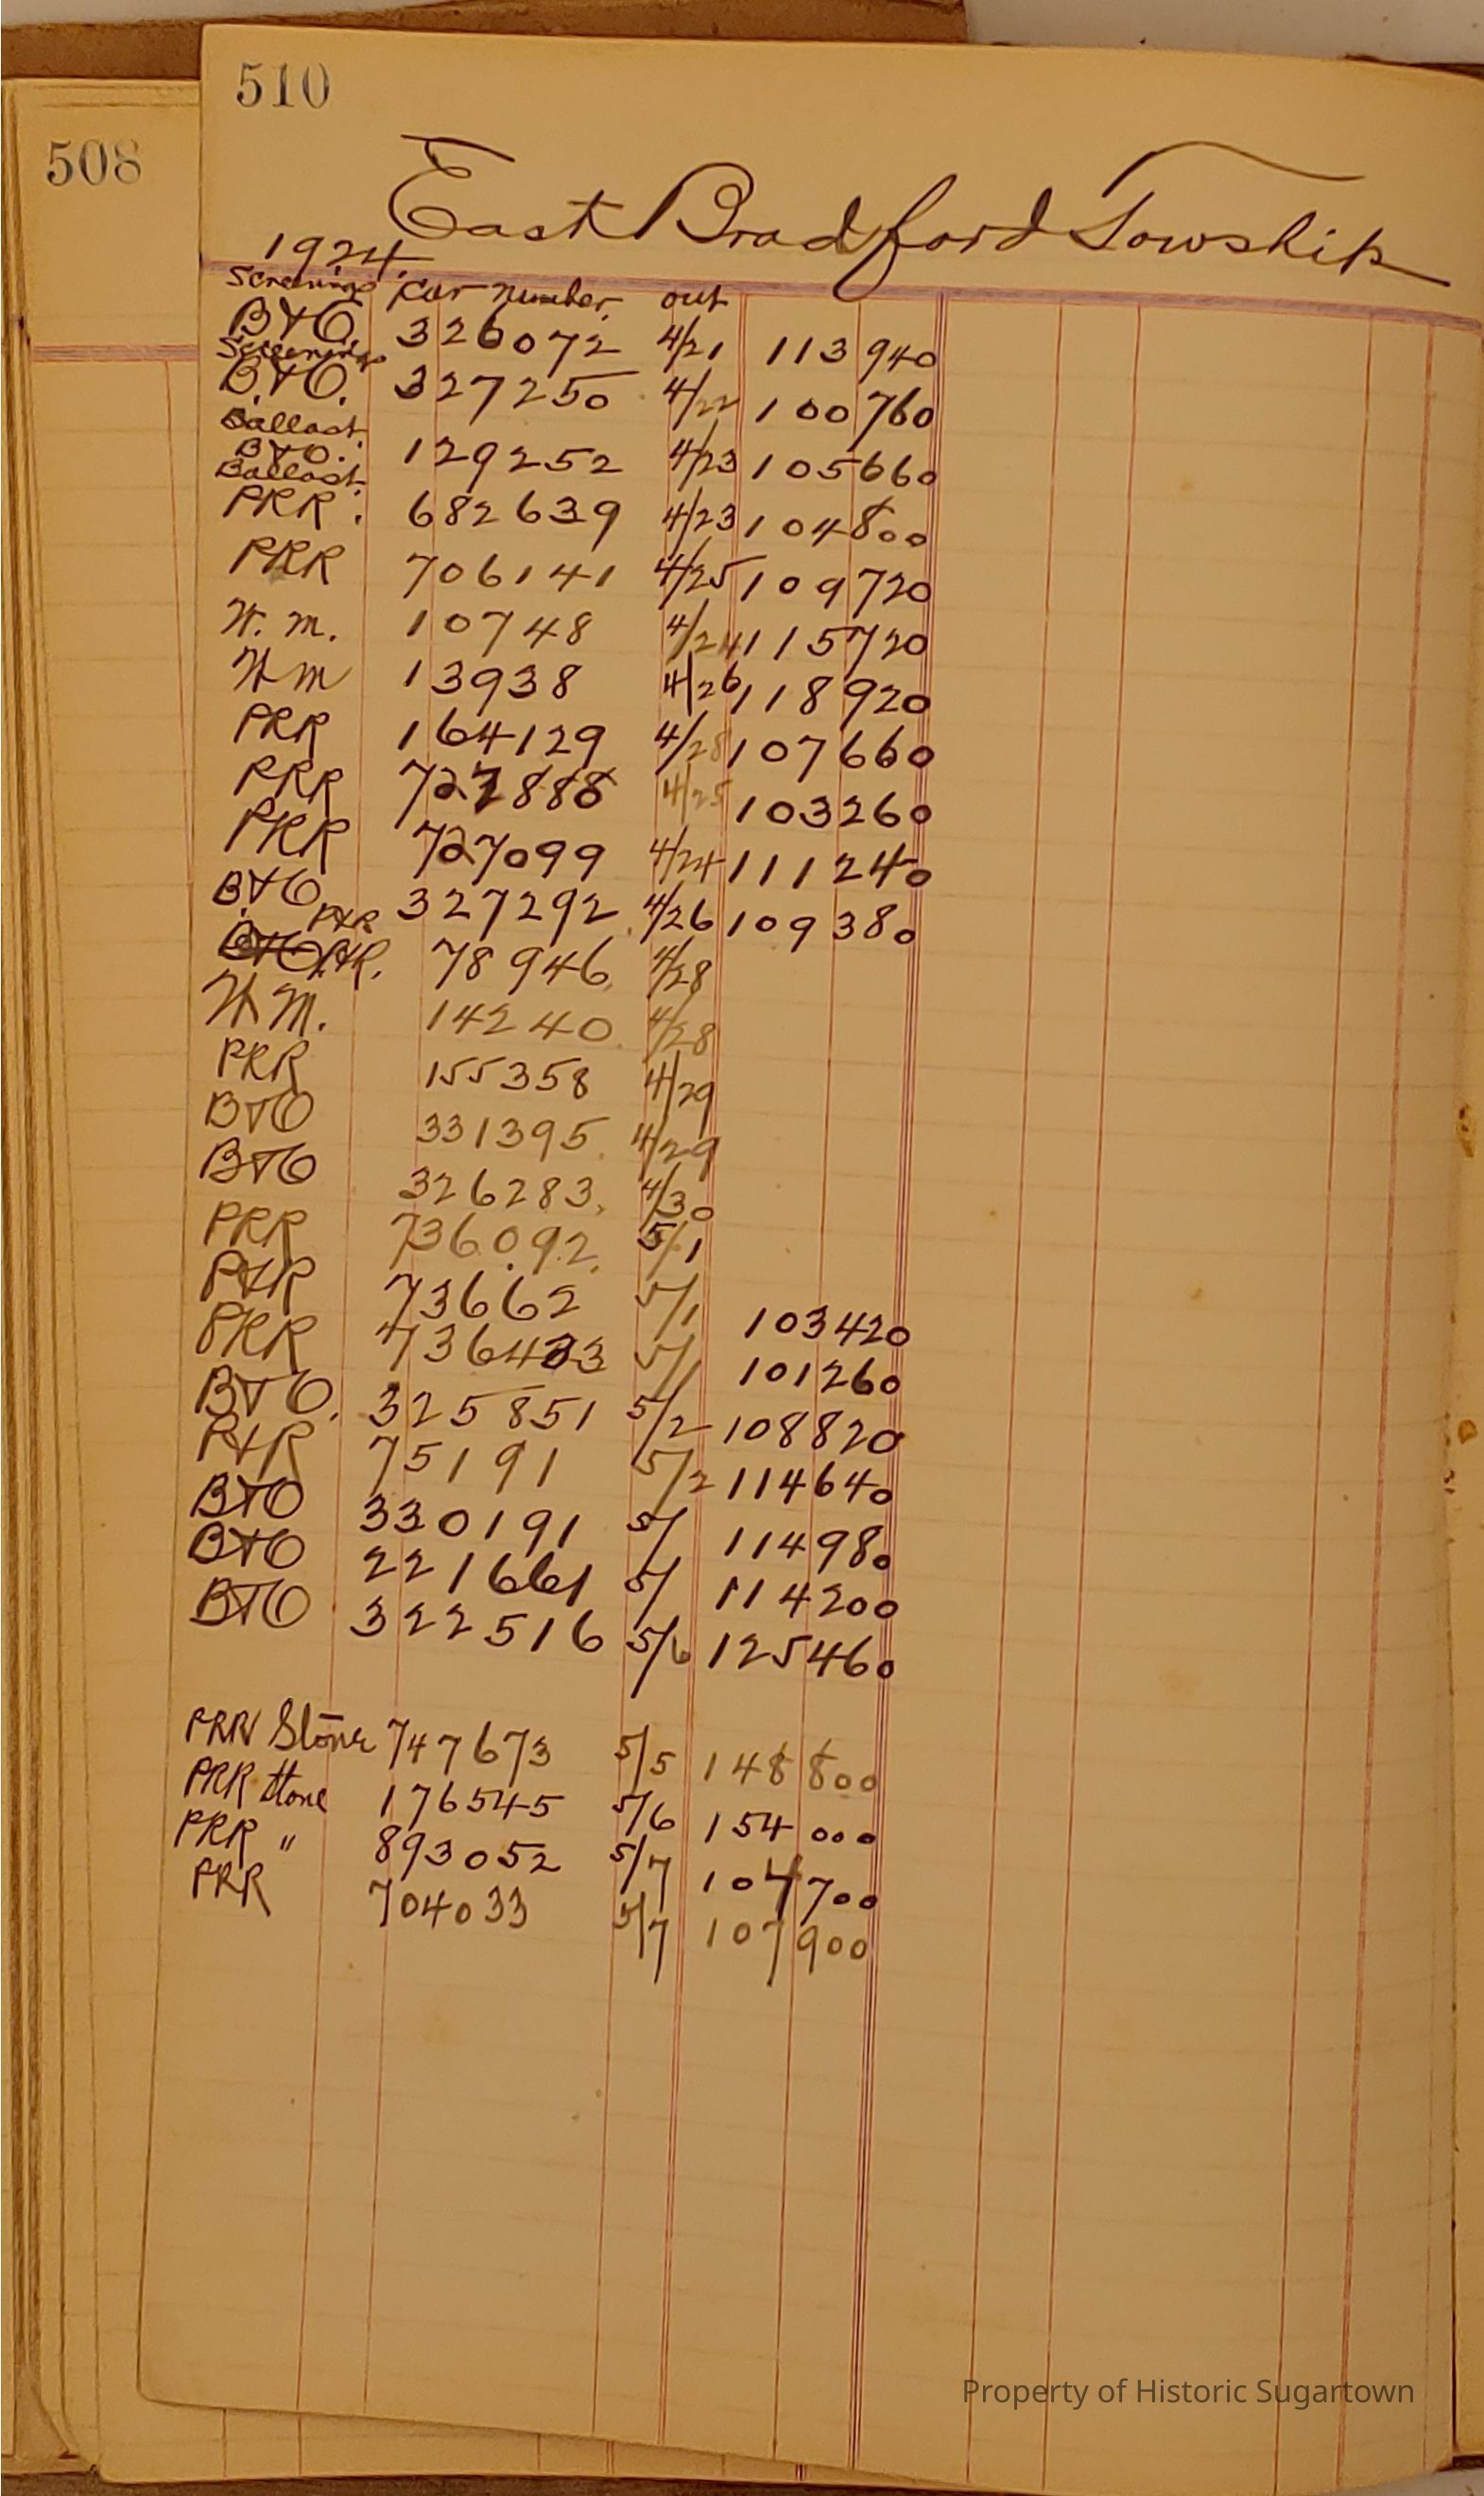 510
508
East Bradford Towship
1924.
Screenings Car number. out
B&O. 326072 4/21 113940
Screenings
B.&O. 327250 4/22 100760
Ballast.
B&O. 129252 4/23 105660
Ballast.
PRR. 682639 4/23 104800
PRR 706141 4/25 109720
W. M. 10748 4/24 115720
WM 13938 4/26 118920
PRR 164129 4/28 107660
PRR 727888 4/25 103260
PRR 727099 4/24 111240
B.&O. 327292 4/26 109380
P&R
B&O P&R. 78946 4/28
W M. 14240. 4/28
PRR 155358 4/29
B&O 331395. 4/29
B&O 326283. 4/30
PRR 736092. 5/1
P&R 73662 5/1 103420
PRR 736433 5/1 101260
B&O. 325851 5/2 108820
P&R 75191 5/2 114640
B&O 330191 5/ 114980
B&O 221661 5/ 114200
B&O 322516 5/6 125460
PRR Stone 747673 5/5 148800
PRR Stone 176545 5/6 154000
PRR " 893052 5/7 104700
PRR 704033 5/7 107900
Property of Historic Sugartown